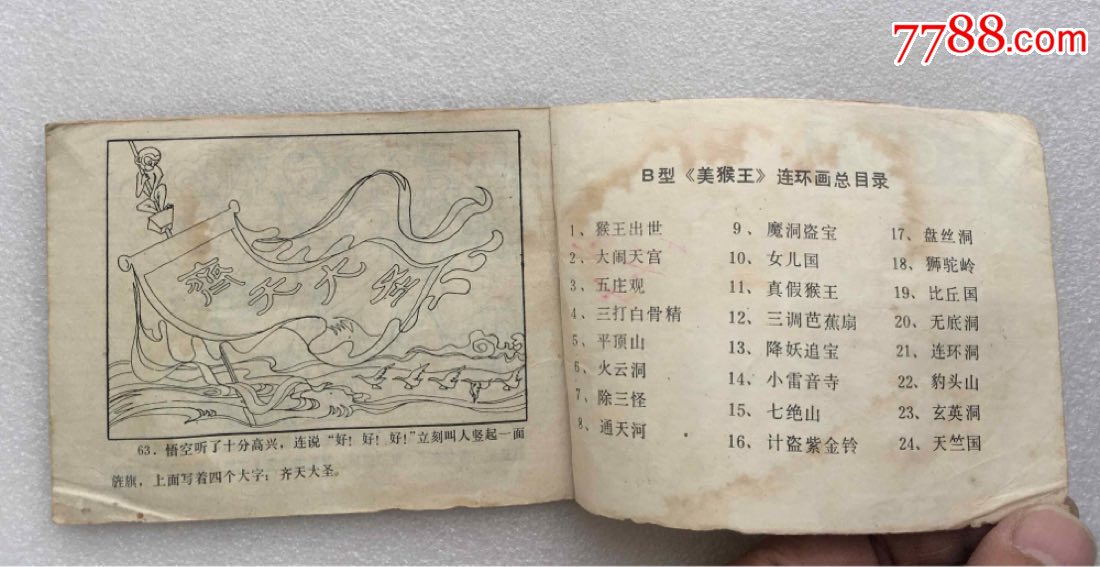 7788.com
齐天大圣
63．悟空听了十分高兴，连说“好！好！好！”立刻叫人竖起一面
旌旗，上面写着四个大字：齐天大圣。
B型《美猴王》连环画总目录
1、猴王出世
2、大闹天宫
3、五庄观
4、三打白骨精
5、平顶山
6、火云洞
7、除三怪
8、通天河
9、魔洞盗宝
10、女儿国
11、真假猴王
12、三调芭蕉扇
13、降妖追宝
14、小雷音寺
15、七绝山
16、计盗紫金铃
17、盘丝洞
18、狮驼岭
19、比丘国
20、无底洞
21、连环洞
22、豹头山
23、玄英洞
24、天竺国